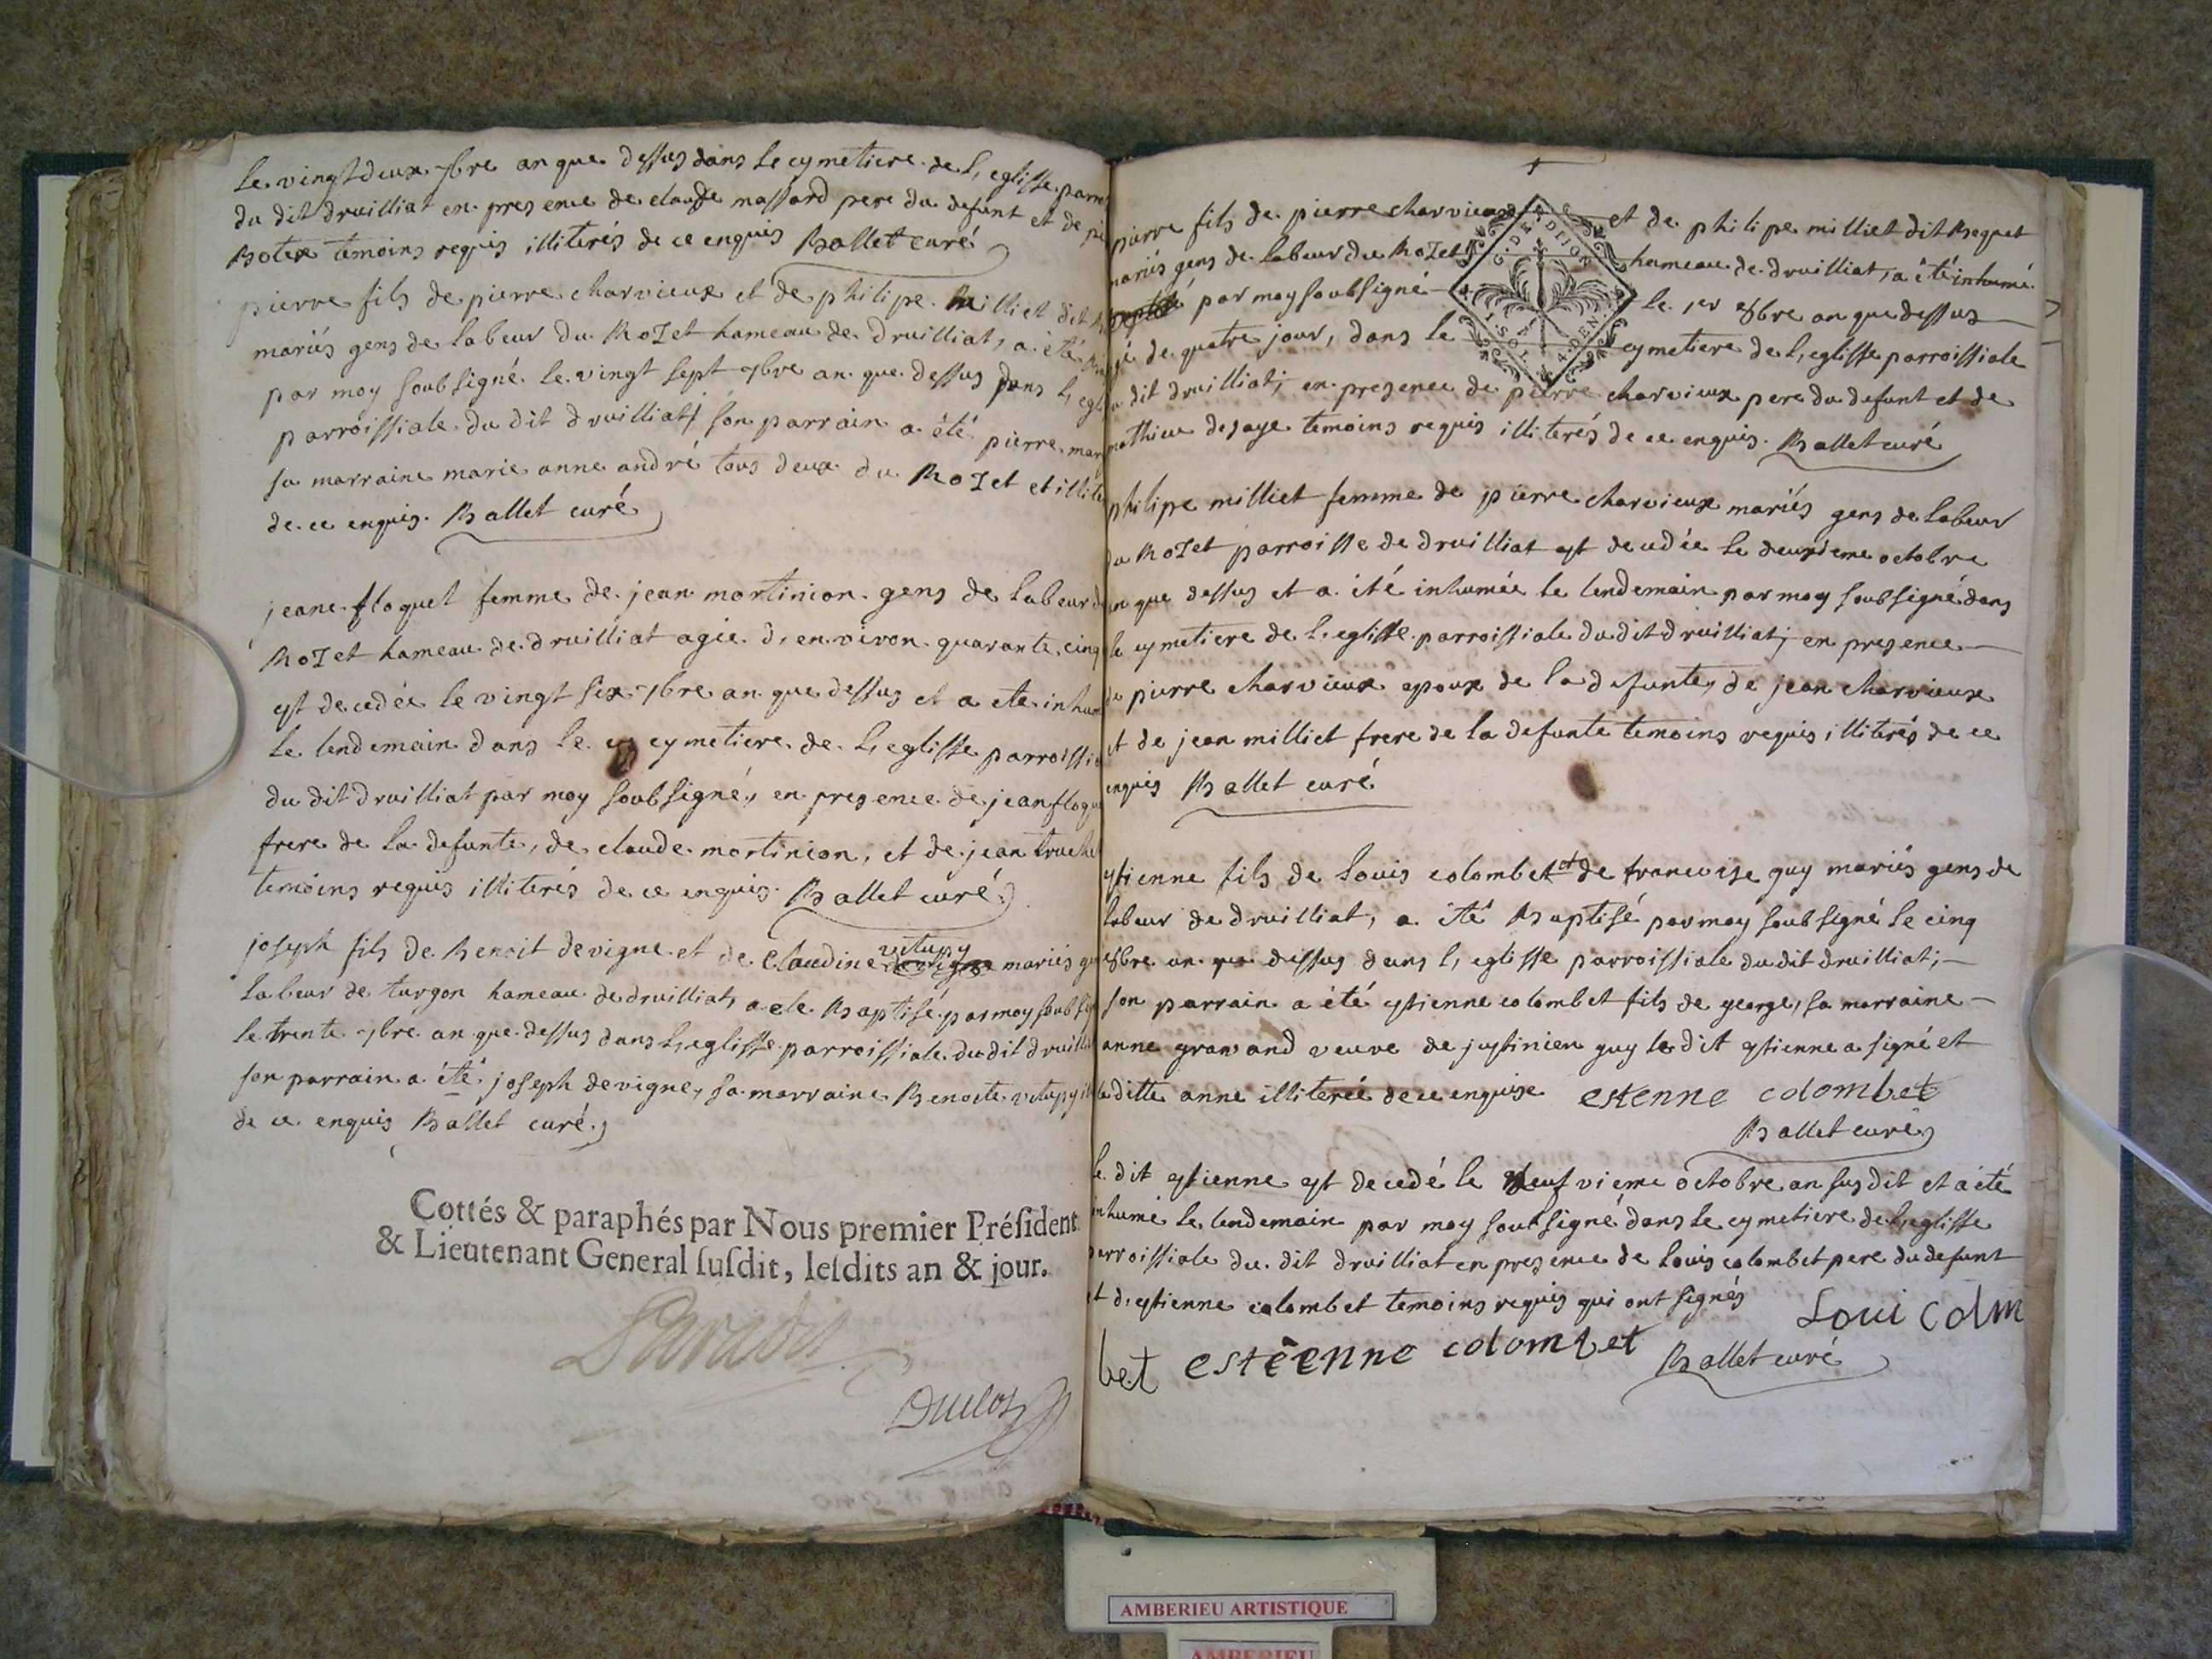 le vingt deux 7bre an que dessus dans le cymetiere de l'eglisse parro
du dit druilliat en presence de claude massard pere du defunt et de pie
Botex temoins requis illiterés de ce enquis Ballet curé
pierre fils de pierre charvieux et de philipe Milliet dit
mariés gens de labeur du Rozet hameau de druilliat, a été
par moy soubsigné le vingt sept 7bre an que dessus dans l'egl
parroissiale du dit druilliat; son parrain a été pierre mar
sa marraine marie anne andré tous deux du Rozet et illite
de ce enquis. Ballet curé
jeane floquet femme de jean mortinion gens de labeur d
Rozet hameau de druilliat agée d'environ quarante cinq
est decedée le vingt six 7bre an que dessus et a ete inhum
le lendemain dans le cymetiere de l'eglisse parroissia
du dit druilliat par moy soubsigné, en presence de jean floqu
frere de la defunte, de claude mortinion, et de jean truche
temoins requis illiterés de ce enquis. Ballet curé
joseph fils de Benoit devigne et de Claudine vitupy mariés g
labeur de turgon hameau de druilliat, a ete Baptisé par moy soubsig
le trente 7bre an que dessus dans l'eglisse parroissiale du dit druillia
son parrain a été joseph devigne, sa marraine Benoite vitupy il
de ce enquis Ballet curé
Cottés & paraphés par Nous premier Président
& Lieutenant General susdit, lesdits an & jour.
Duclos
pierre fils de pierre charvieux et de philipe milliet dit Beguet
mariés gens de labeur du Rozet hameau de druilliat, a été inhumé
par moy soubsigné le 1er 8bre an que dessus
gé de quatre jour, dans le cymetiere de l'eglisse parroissiale
u dit druilliat; en presence de pierre charvieux pere du defunt et de
mathieu desaye temoins requis illiterés de ce enquis. Ballet curé
G. DE DIJON
4. DEN
philipe milliet femme de pierre charvieux mariés gens de labeur
du Rozet parroisse de druilliat est decedée le deuxieme octobre
an que dessus et a été inhumée le lendemain par moy soubsigné dans
le cymetiere de l'eglisse parroissiale du dit druilliat; en presence
de pierre charvieux epoux de la defunte, de jean charvieux
et de jean milliet frere de la defunte temoins requis illiterés de ce
enquis Ballet curé
estienne fils de louis colombet et de francoise guy mariés gens de
labeur de druilliat, a été Baptisé par moy soubsigné le cinq
8bre an que dessus dans l'eglisse parroissiale du dit druilliat;
son parrain a été estienne colombet fils de george, sa marraine
anne granand veuve de justinien guy le dit estienne a signé et
la ditte anne illiterée de ce enquise estenne colombet
Ballet curé
le dit estienne est decedé le neufvieme octobre an susdit et a été
inhumé le lendemain par moy soubsigné dans le cymetiere de l'eglisse
parroissiale du dit druilliat en presence de louis colombet pere du defunt
et d'estienne colombet temoins requis qui ont signés Loui colm
bet estêenne colombet Ballet curé
AMBERIEU ARTISTIQUE
AMBERIEU